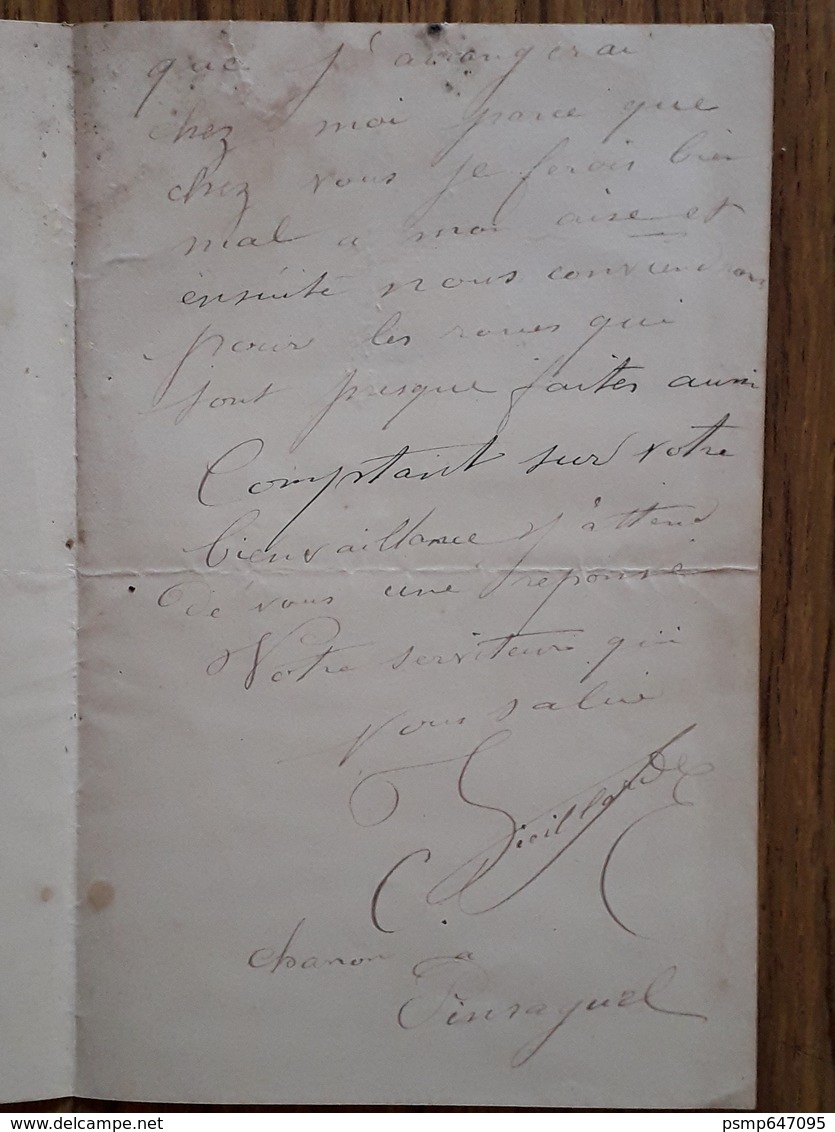 que j'arrangerai
chez moi parce que
chez vous je serais bien
mal a mon aise et
ensuite nous conviendrons
pour les roues qui
sont presque faites aussi
Comptant sur votre
bienvaillance j'attend
De vous une reponse
Votre serviteur qui
vous salue
charron a
Pinsaguel
psmp647095
delcampe.net